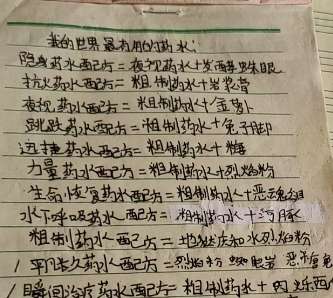 我的世界最有用的药水:
隐身药水配方=夜视药水+发酵蛛眼
抗火药水配方=粗制药水+岩浆膏
夜视药水配方=粗制药水+金萝卜
跳跃药水配方=粗制药水+兔子脚
迅捷药水配方=粗制药水+糖
力量药水配方=粗制药水+烈焰粉
生命恢复药水配方=粗制药水+恶魂泪
水下呼吸药水配方=粗制药水+河豚
粗制药水配方=地狱疣和水烈焰粉
平凡长久药水配方=烈焰粉 蜘蛛眼 恶
瞬间治疗药水配方=粗制药水+闪 西